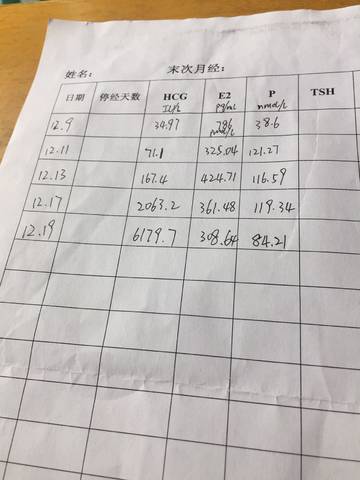 姓名： 末次月经：
日期 停经天数 HCG E2 P TSH
IU/L pg/mL nmol/L
12.9 34.97 786 38.6
pmol/L
12.11 71.1 325.04 121.27
12.13 167.4 424.71 116.59
12.17 2063.2 361.48 119.34
12.19 6179.7 308.64 84.21